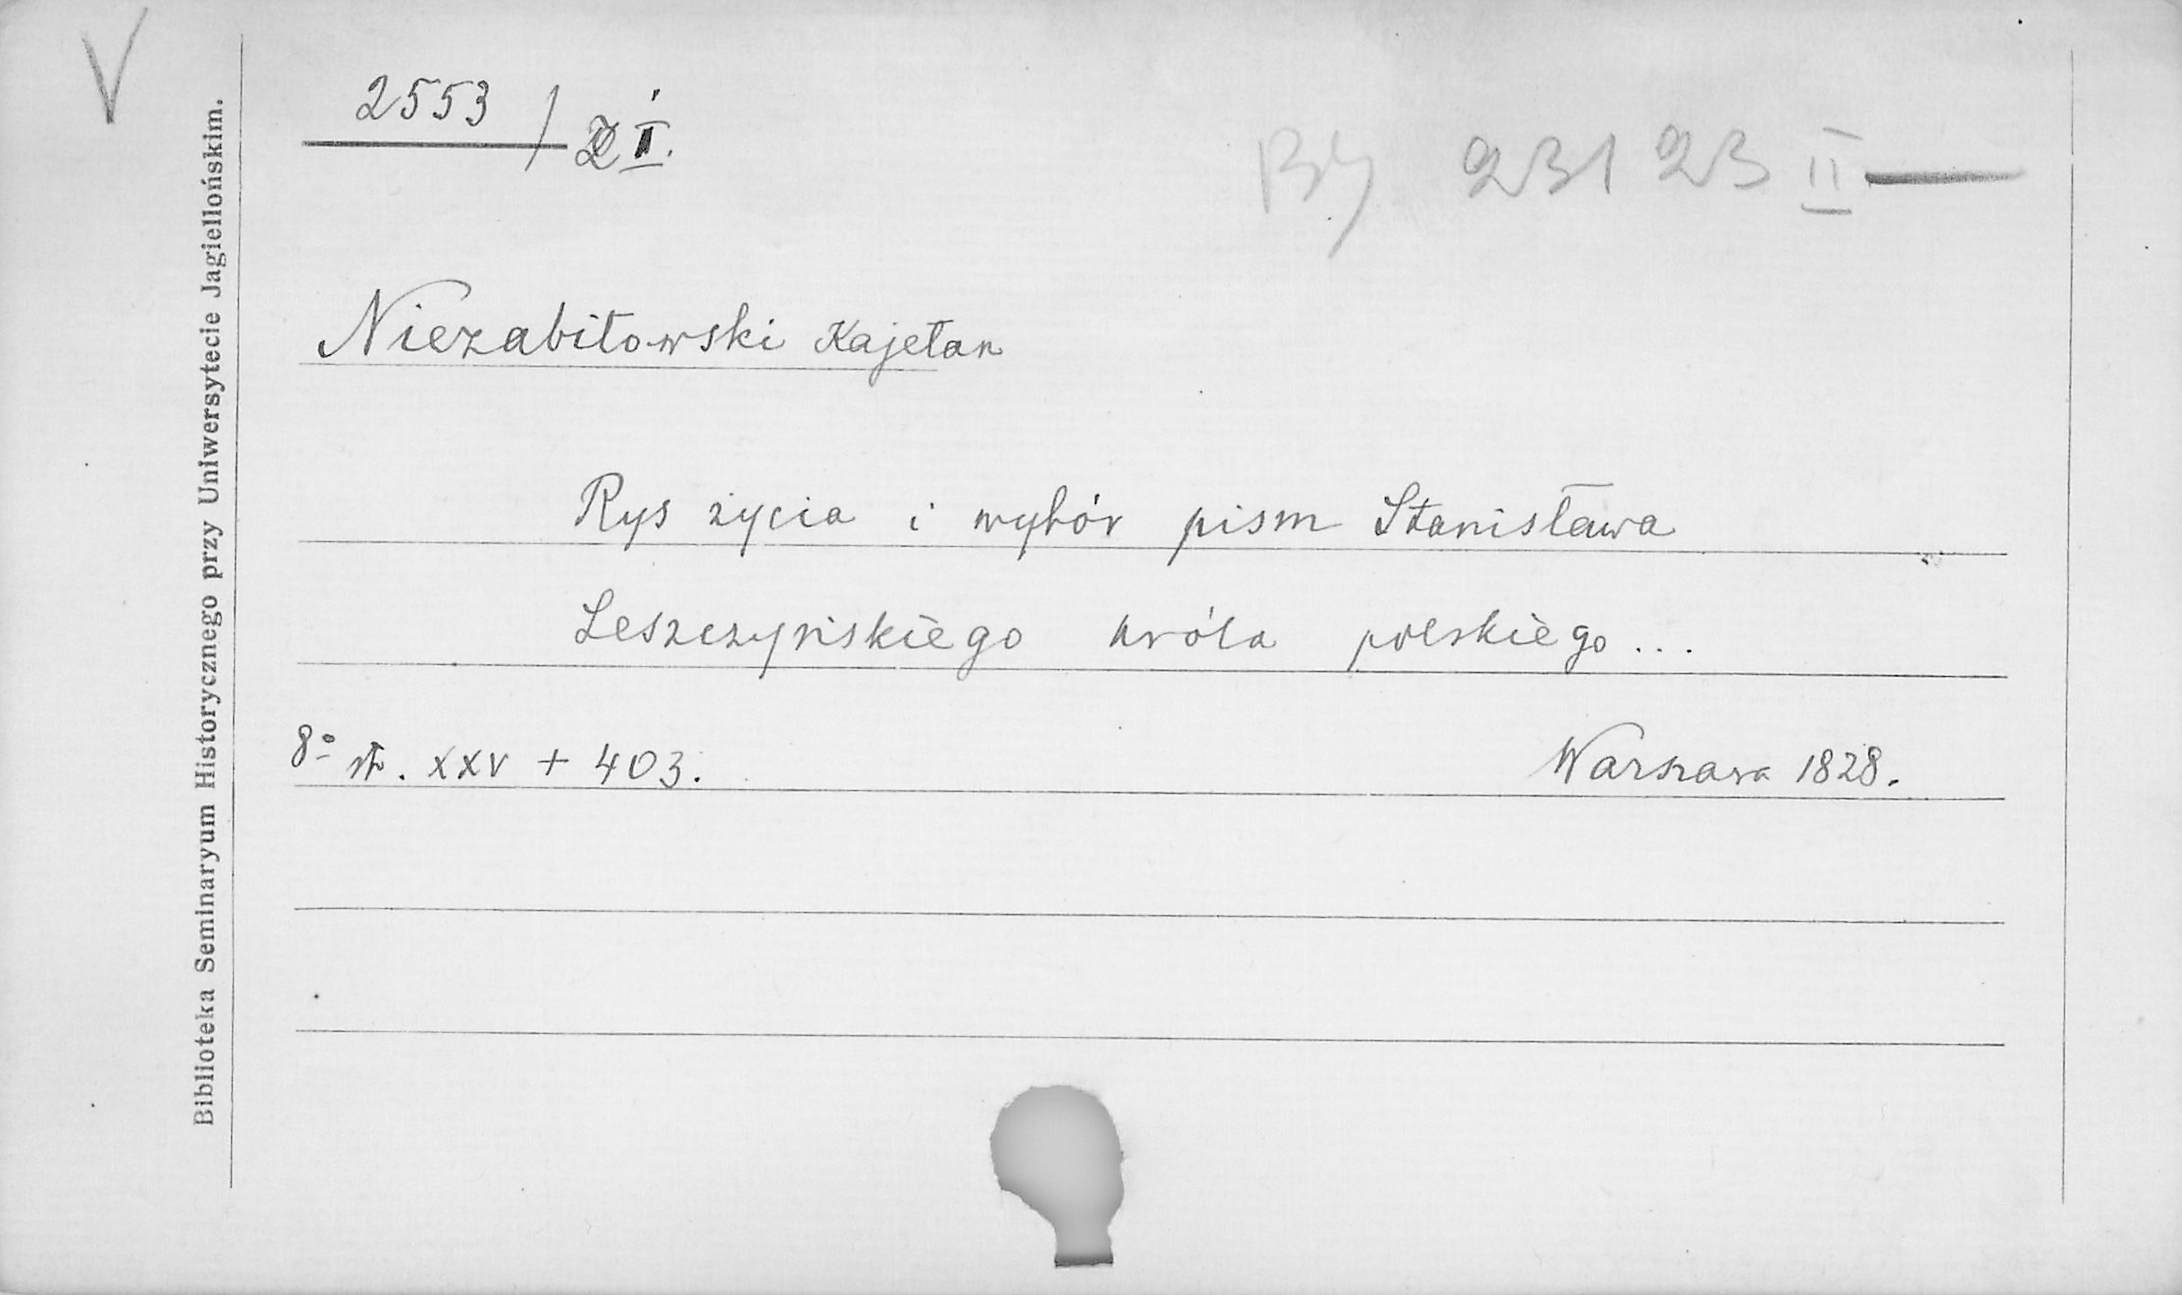 V
2553 / Z I.
BJ 23123 II
Niezabitowski Kajetan
Rys życia i wybór pism Stanisława
Leszczyńskiego króla polskiego...
8° str. XXV + 403. Warszawa 1828.
Biblioteka Seminaryum Historycznego przy Uniwersytecie Jagiellońskim.